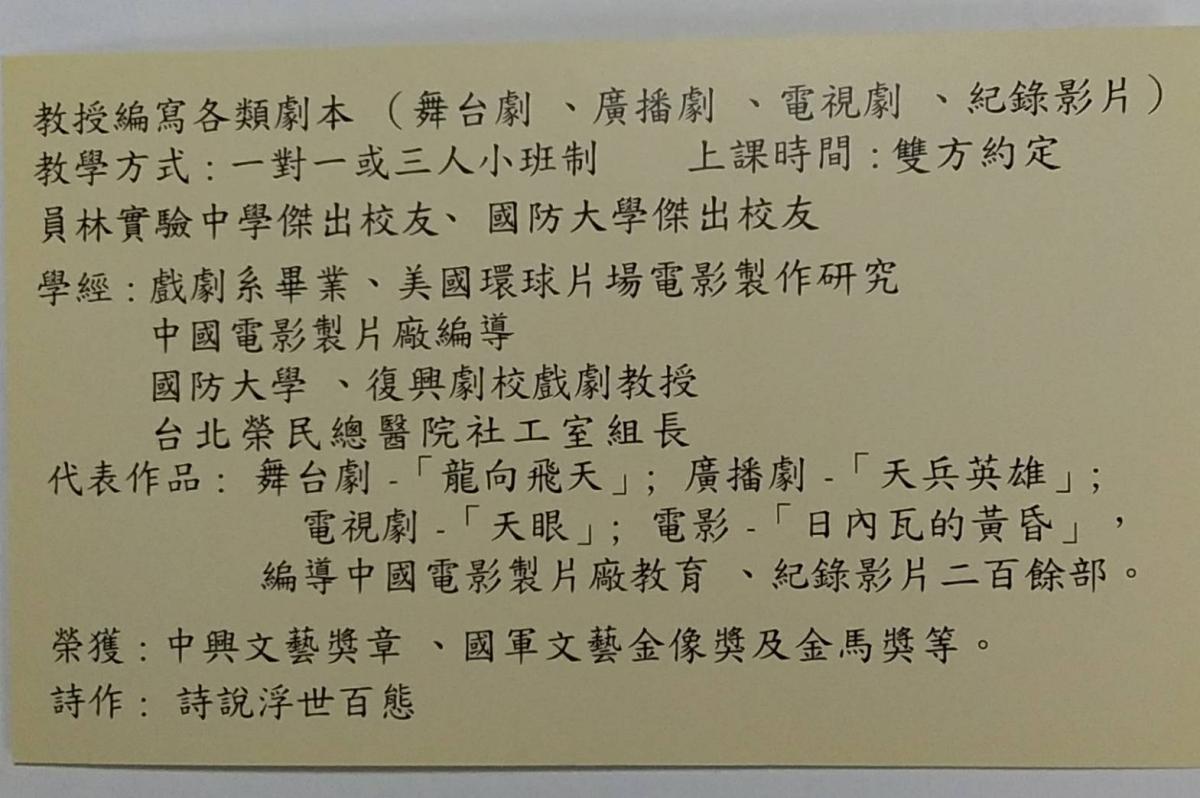 教授編寫各類劇本（舞台劇、廣播劇、電視劇、紀錄影片）
教學方式：一對一或三人小班制　　上課時間：雙方約定
員林實驗中學傑出校友、國防大學傑出校友
學經：戲劇系畢業、美國環球片場電影製作研究
中國電影製片廠編導
國防大學、復興劇校戲劇教授
台北榮民總醫院社工室組長
代表作品：舞台劇-「龍向飛天」；廣播劇-「天兵英雄」；
電視劇-「天眼」；電影-「日內瓦的黃昏」，
編導中國電影製片廠教育、紀錄影片二百餘部。
榮獲：中興文藝獎章、國軍文藝金像獎及金馬獎等。
詩作：詩說浮世百態